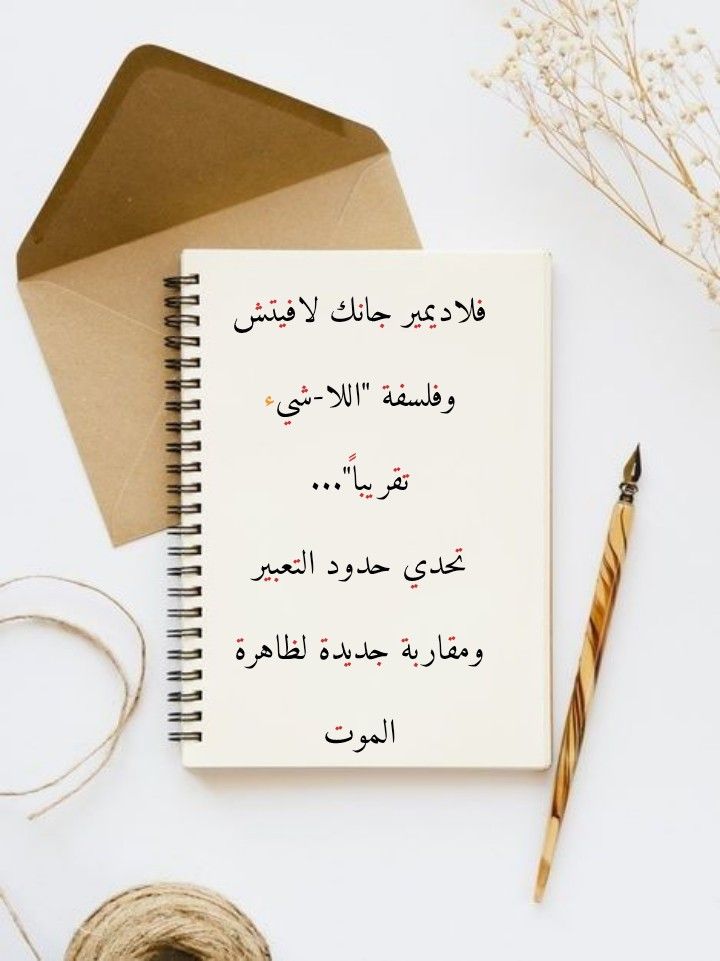 فلاديمير جانك لافيتش
وفلسفة "اللا-شيء
تقريباً"...
تحدي حدود التعبير
ومقاربة جديدة لظاهرة
الموت